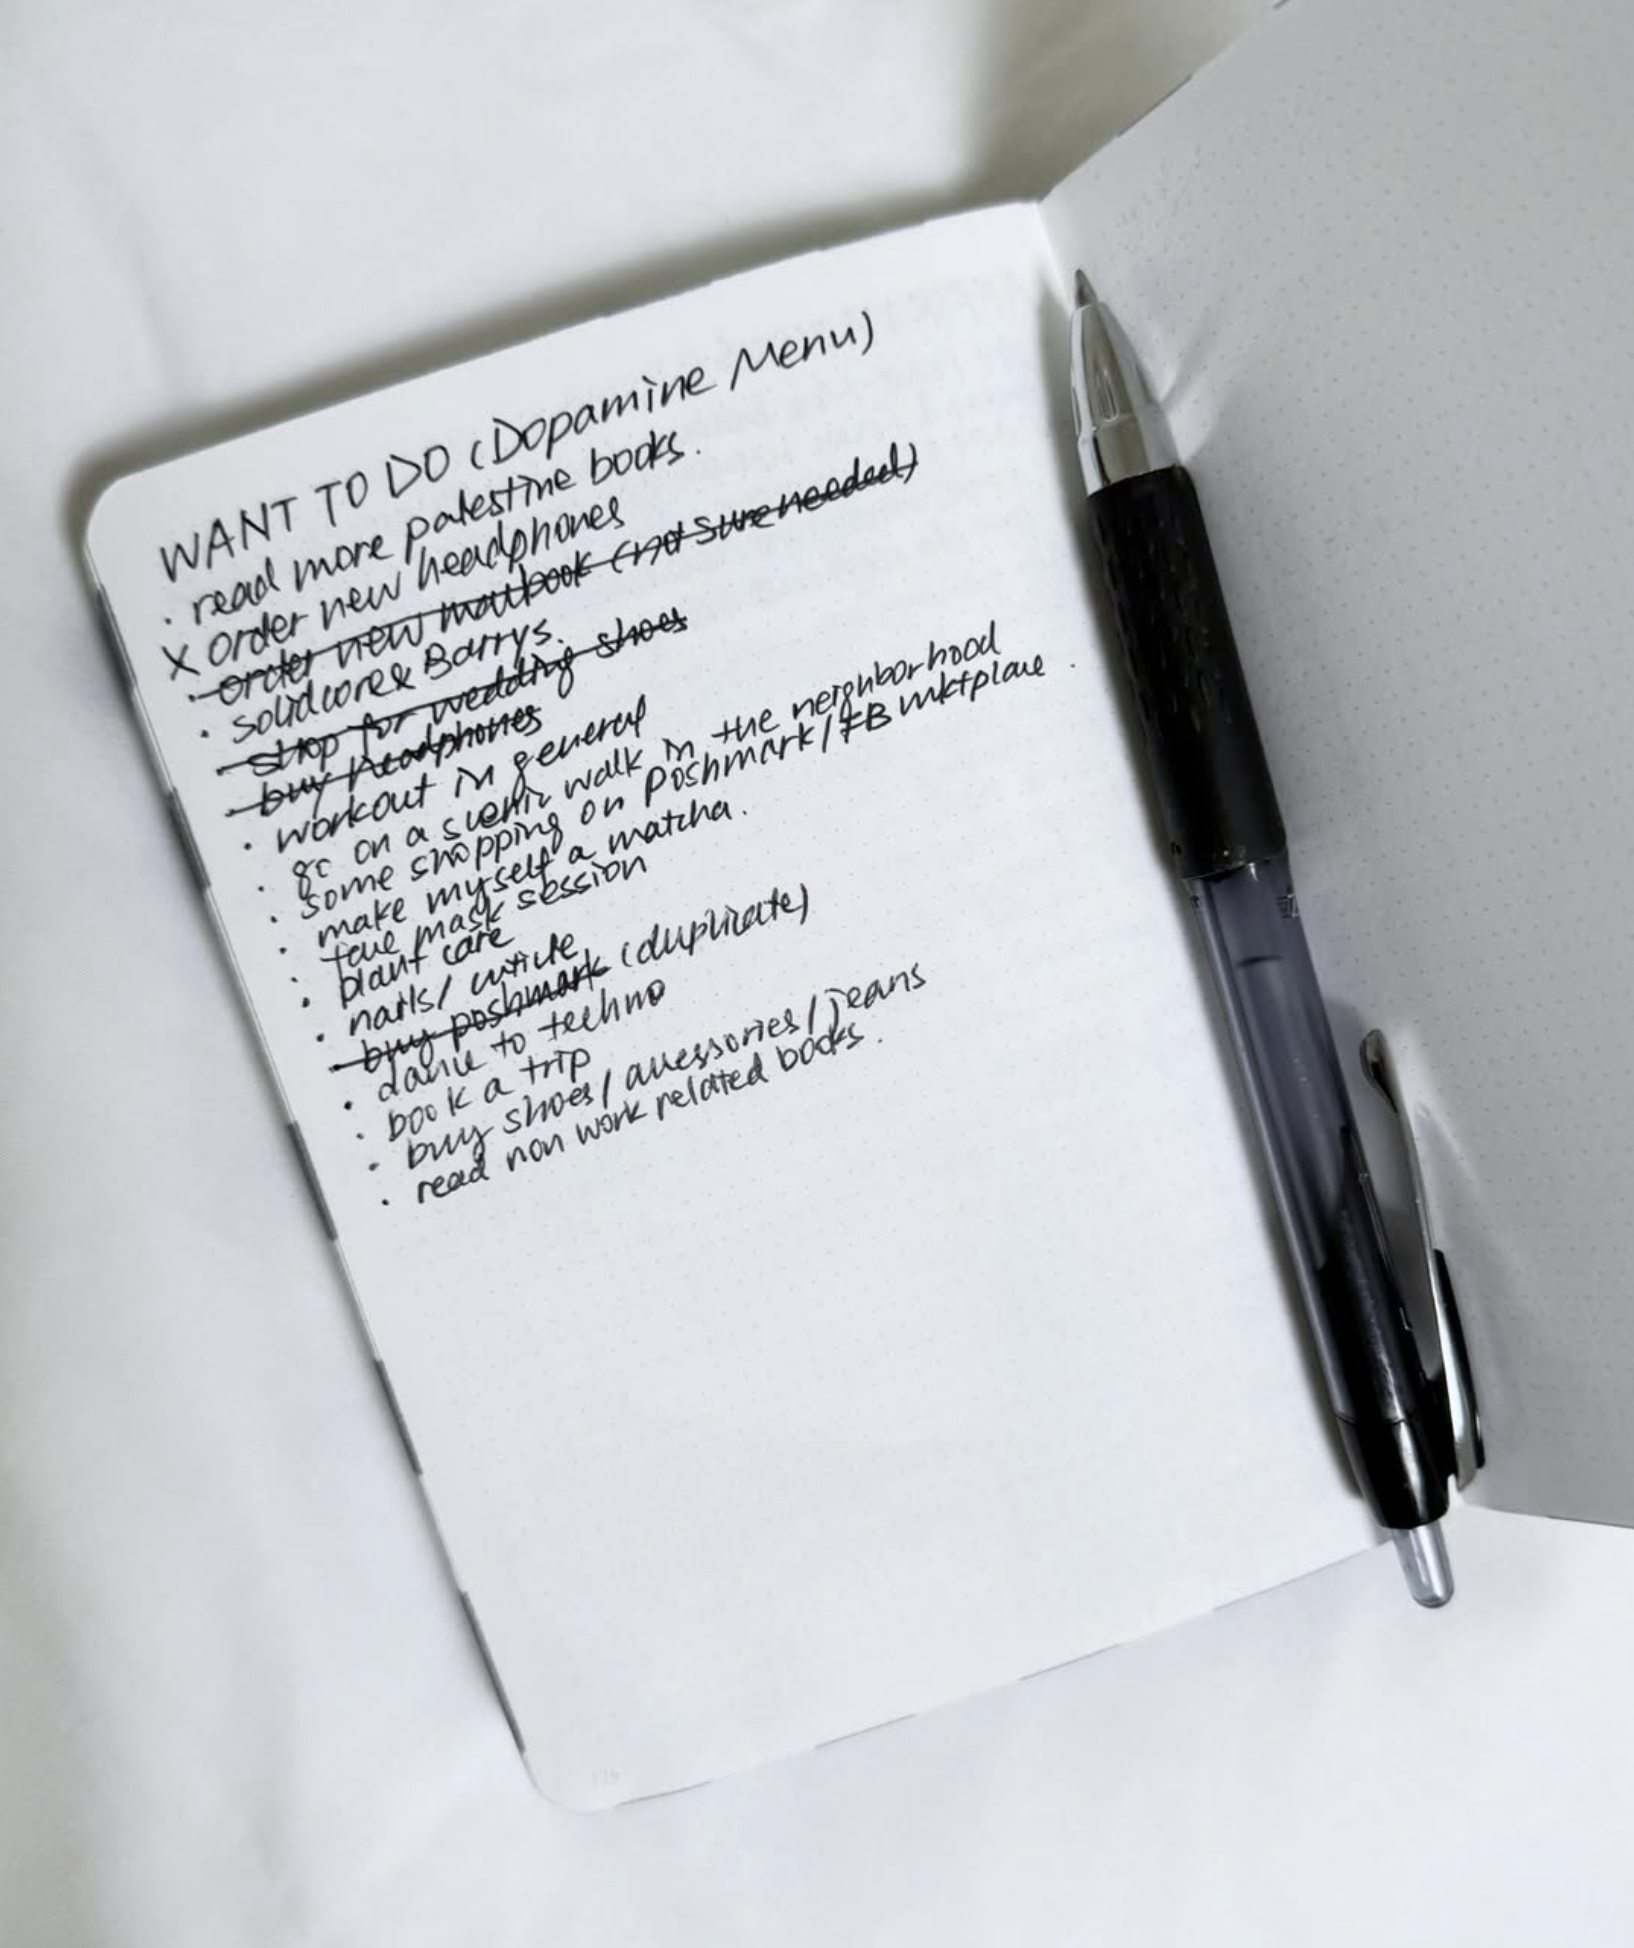 WANT TO DO (Dopamine Menu)
· read more palestine books.
X order new headphones
· order new macbook (not sure needed)
· solidcore & Barrys.
· shop for wedding shoes
· buy headphones
· workout in general
· go on a scenic walk in the neighborhood
· some shopping on Poshmark/FB mktplace.
· make myself a matcha.
· face mask session
· plant care
· nails/cuticle
· buy poshmark (duplicate)
· dance to techno
· book a trip
· buy shoes/accessories/jeans
· read non work related books.